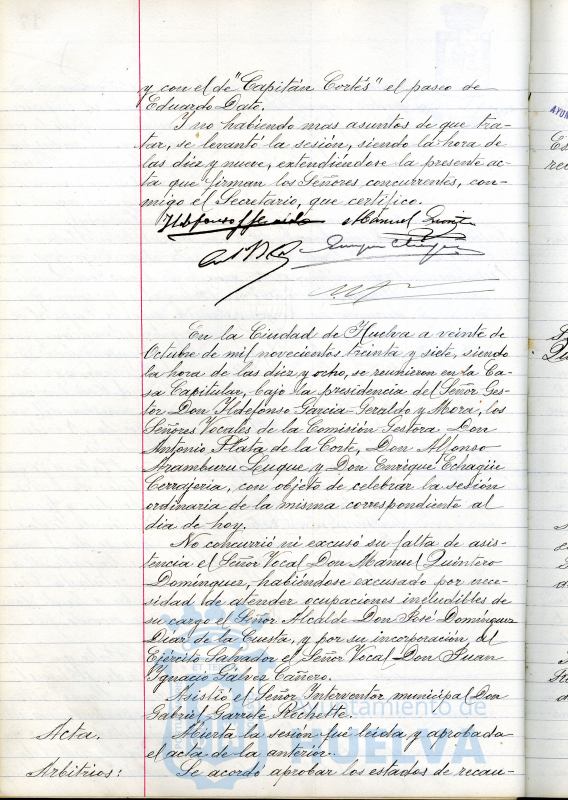 y con el de "Capitán Cortés" el paseo de
Eduardo Dato.
Y no habiendo mas asuntos de que tra-
tar, se levantó la sesión, siendo la hora de
las diez y nueve, extendiéndose la presente ac-
ta que firman los Señores concurrentes, con-
migo el Secretario, que certifico.
En la Ciudad de Huelva a veinte de
Octubre de mil novecientos treinta y siete, siendo
la hora de las diez y ocho, se reunieron en la Ca-
sa Capitular, bajo la presidencia del Señor Ges-
tor Don Ildefonso Garcia-Geraldo y Mora, los
Señores Vocales de la Comisión Gestora Don
Antonio Plata de la Corte, Don Alfonso
Aramburu Luque y Don Enrique Echagüe
Cerrajeria, con objeto de celebrar la sesión
ordinaria de la misma correspondiente al
dia de hoy.
No concurrió ni excusó su falta de asis-
tencia el Señor Vocal Don Manuel Quintero
Domínguez, habiéndose excusado por nece-
sidad de atender ocupaciones ineludibles de
su cargo el Señor Alcalde Don José Domínguez
Diaz de la Cuesta, y por su incorporación al
Ejército Salvador el Señor Vocal Don Juan
Ignacio Gálvez Cañero.
Asistió el Señor Interventor municipal Don
Gabriel Garrote Rechette.
Acta. Abierta la sesión fué leida y aprobada
el acta de la anterior.
Arbitrios: Se acordó aprobar los estados de recau-
Ayuntamiento de
HUELVA